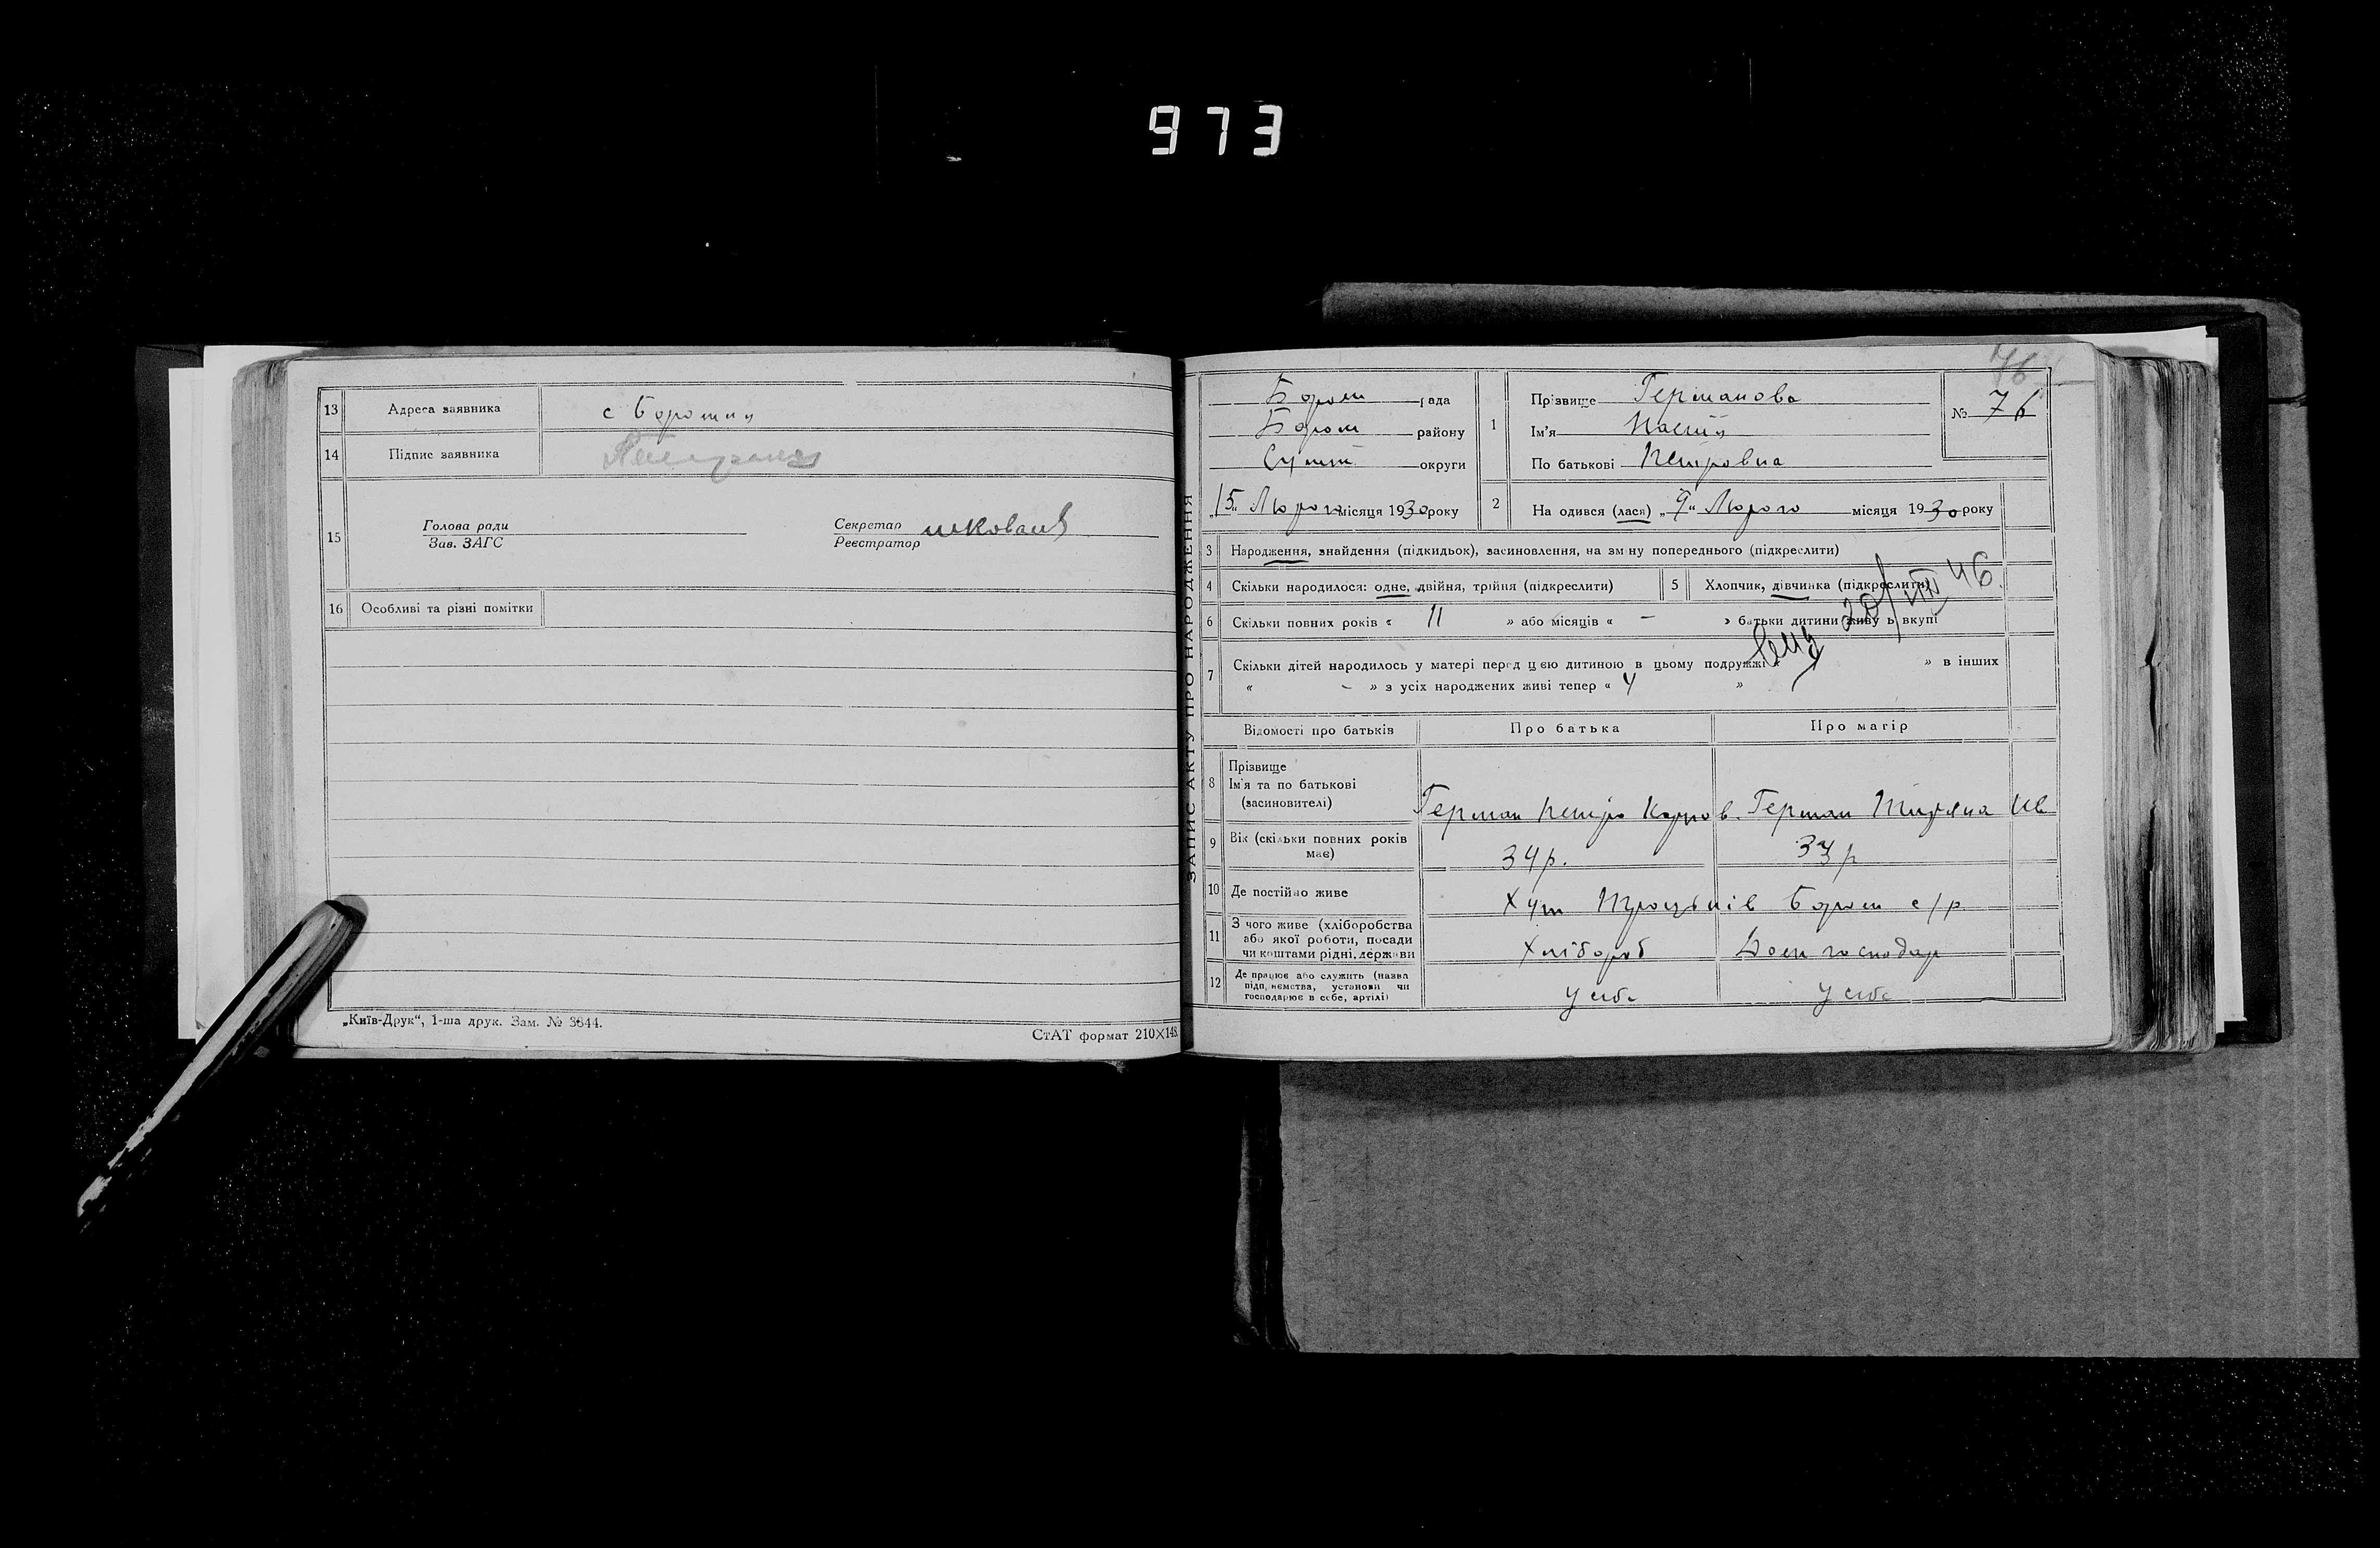 973
13 Адреса заявника с Боромля
14 Підпис заявника
15 Голова ради
Зав. ЗАГС
Секретар
Реєстратор
16 Особливі та різні помітки
„Київ-Друк“, 1-ша друк. Зам. № 3644.
СтАТ формат 210×148
ЗАПИС АКТУ ПРО НАРОДЖЕННЯ
76
Бором рада
Бором району
Сумськ округи
„15“ Лютого місяця 1930 року
1 Прізвище Германова
Ім'я Настя
По батькові Петровна
№ 76
2 На одився (лася) „9“ Лютого місяця 1930 року
3 Народження, знайдення (підкидьок), засиновлення, на зм ну попереднього (підкреслити)
4 Скільки народилося: одне, двійня, трійня (підкреслити)
5 Хлопчик, дівчинка (підкреслити)
20/VIII 46
6 Скільки повних років « 11 » або місяців « — » батьки дитини живу ь вкупі
7 Скільки дітей народилось у матері перед цією дитиною в цьому подружжі » в інших
« - » з усіх народжених живі тепер « 4 »
Відомості про батьків Про батька Про матір
8 Прізвище
Ім'я та по батькові
(засиновителі)
Герман Петро Карпов. Герман Титяна Ив
9 Вік (скільки повних років
має)
34р. 33 р
10 Де постійно живе Хут Процьків Бором с/р.
11 З чого живе (хліборобства
або якої роботи, посади
чи коштами рідні, держави
Хлібороб Дом господар
12 Де працює або служить (назва
підп, немства, установи чи
господарює в себе, артілі)
У себе У себе